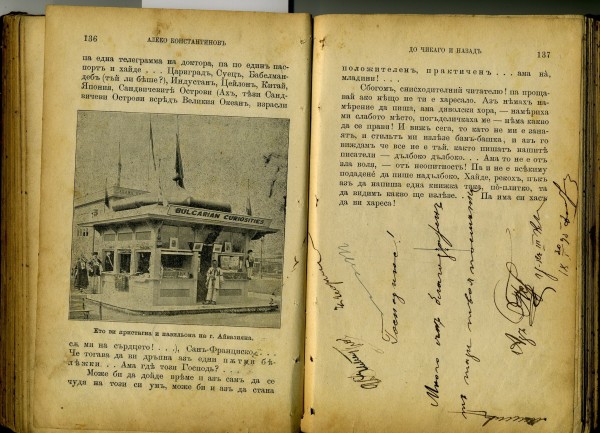 136
АЛЕКО КОНСТАНТИНОВЪ
па една телеграмма на доктора, па по единъ пас-
портъ и хайде . . . Цариградъ, Суецъ, Бабелман-
дебъ (тъй ли бѣше?), Индустанъ, Цейлонъ, Китай,
Япония, Сандвичевитѣ Острови (Ахъ, тѣзи Санд-
вичеви Острови всрѣдъ Великия Океанъ, израсли
BULGARIAN CURIOSITIES
Ето ви пристигна и павильома на г. Айвазияна.
сѫ ми на сърдцето! . . .), Санъ-Франциско. . . .
Че тогава да ви дръпна азъ едни пѫтни бѣ-
лѣжки. . . Ама гдѣ този Господь? . . .
Може би да дойде врѣме и азъ самъ да се
чудя на този си умъ, може би и азъ да стана
ДО ЧИКАГО И НАЗАДЪ
137
положителенъ, практиченъ . . . ана нà,
младини! . . .
Сбогомъ, снисходителний читателю! па проща-
вай ако нѣщо не ти е харесало. Азъ нѣмахъ на-
мѣрение да пиша, ана дяволски хора, — намѣриха
ми слабото мѣсто, погъделичкаха ме — нѣма какво
да се прави! И вижъ сега, то като не ми е заня-
ятъ, и стилътъ ми излѣзе бамъ-башка, и азъ го
виждамъ че все не е тъй, както пишатъ нашитѣ
писатели — дълбоко дълбоко. . . Ана то не е отъ
зла воля, — отъ неопитность! Па и не е всѣкиму
подадено да пише надълбоко, Хайде, рекохъ, пъкъ
азъ да напиша една книжка така, по-плитко, та
да видимъ какво ще излѣзе. . . Па има си хасъ
да ни хареса!
Господине!
Много